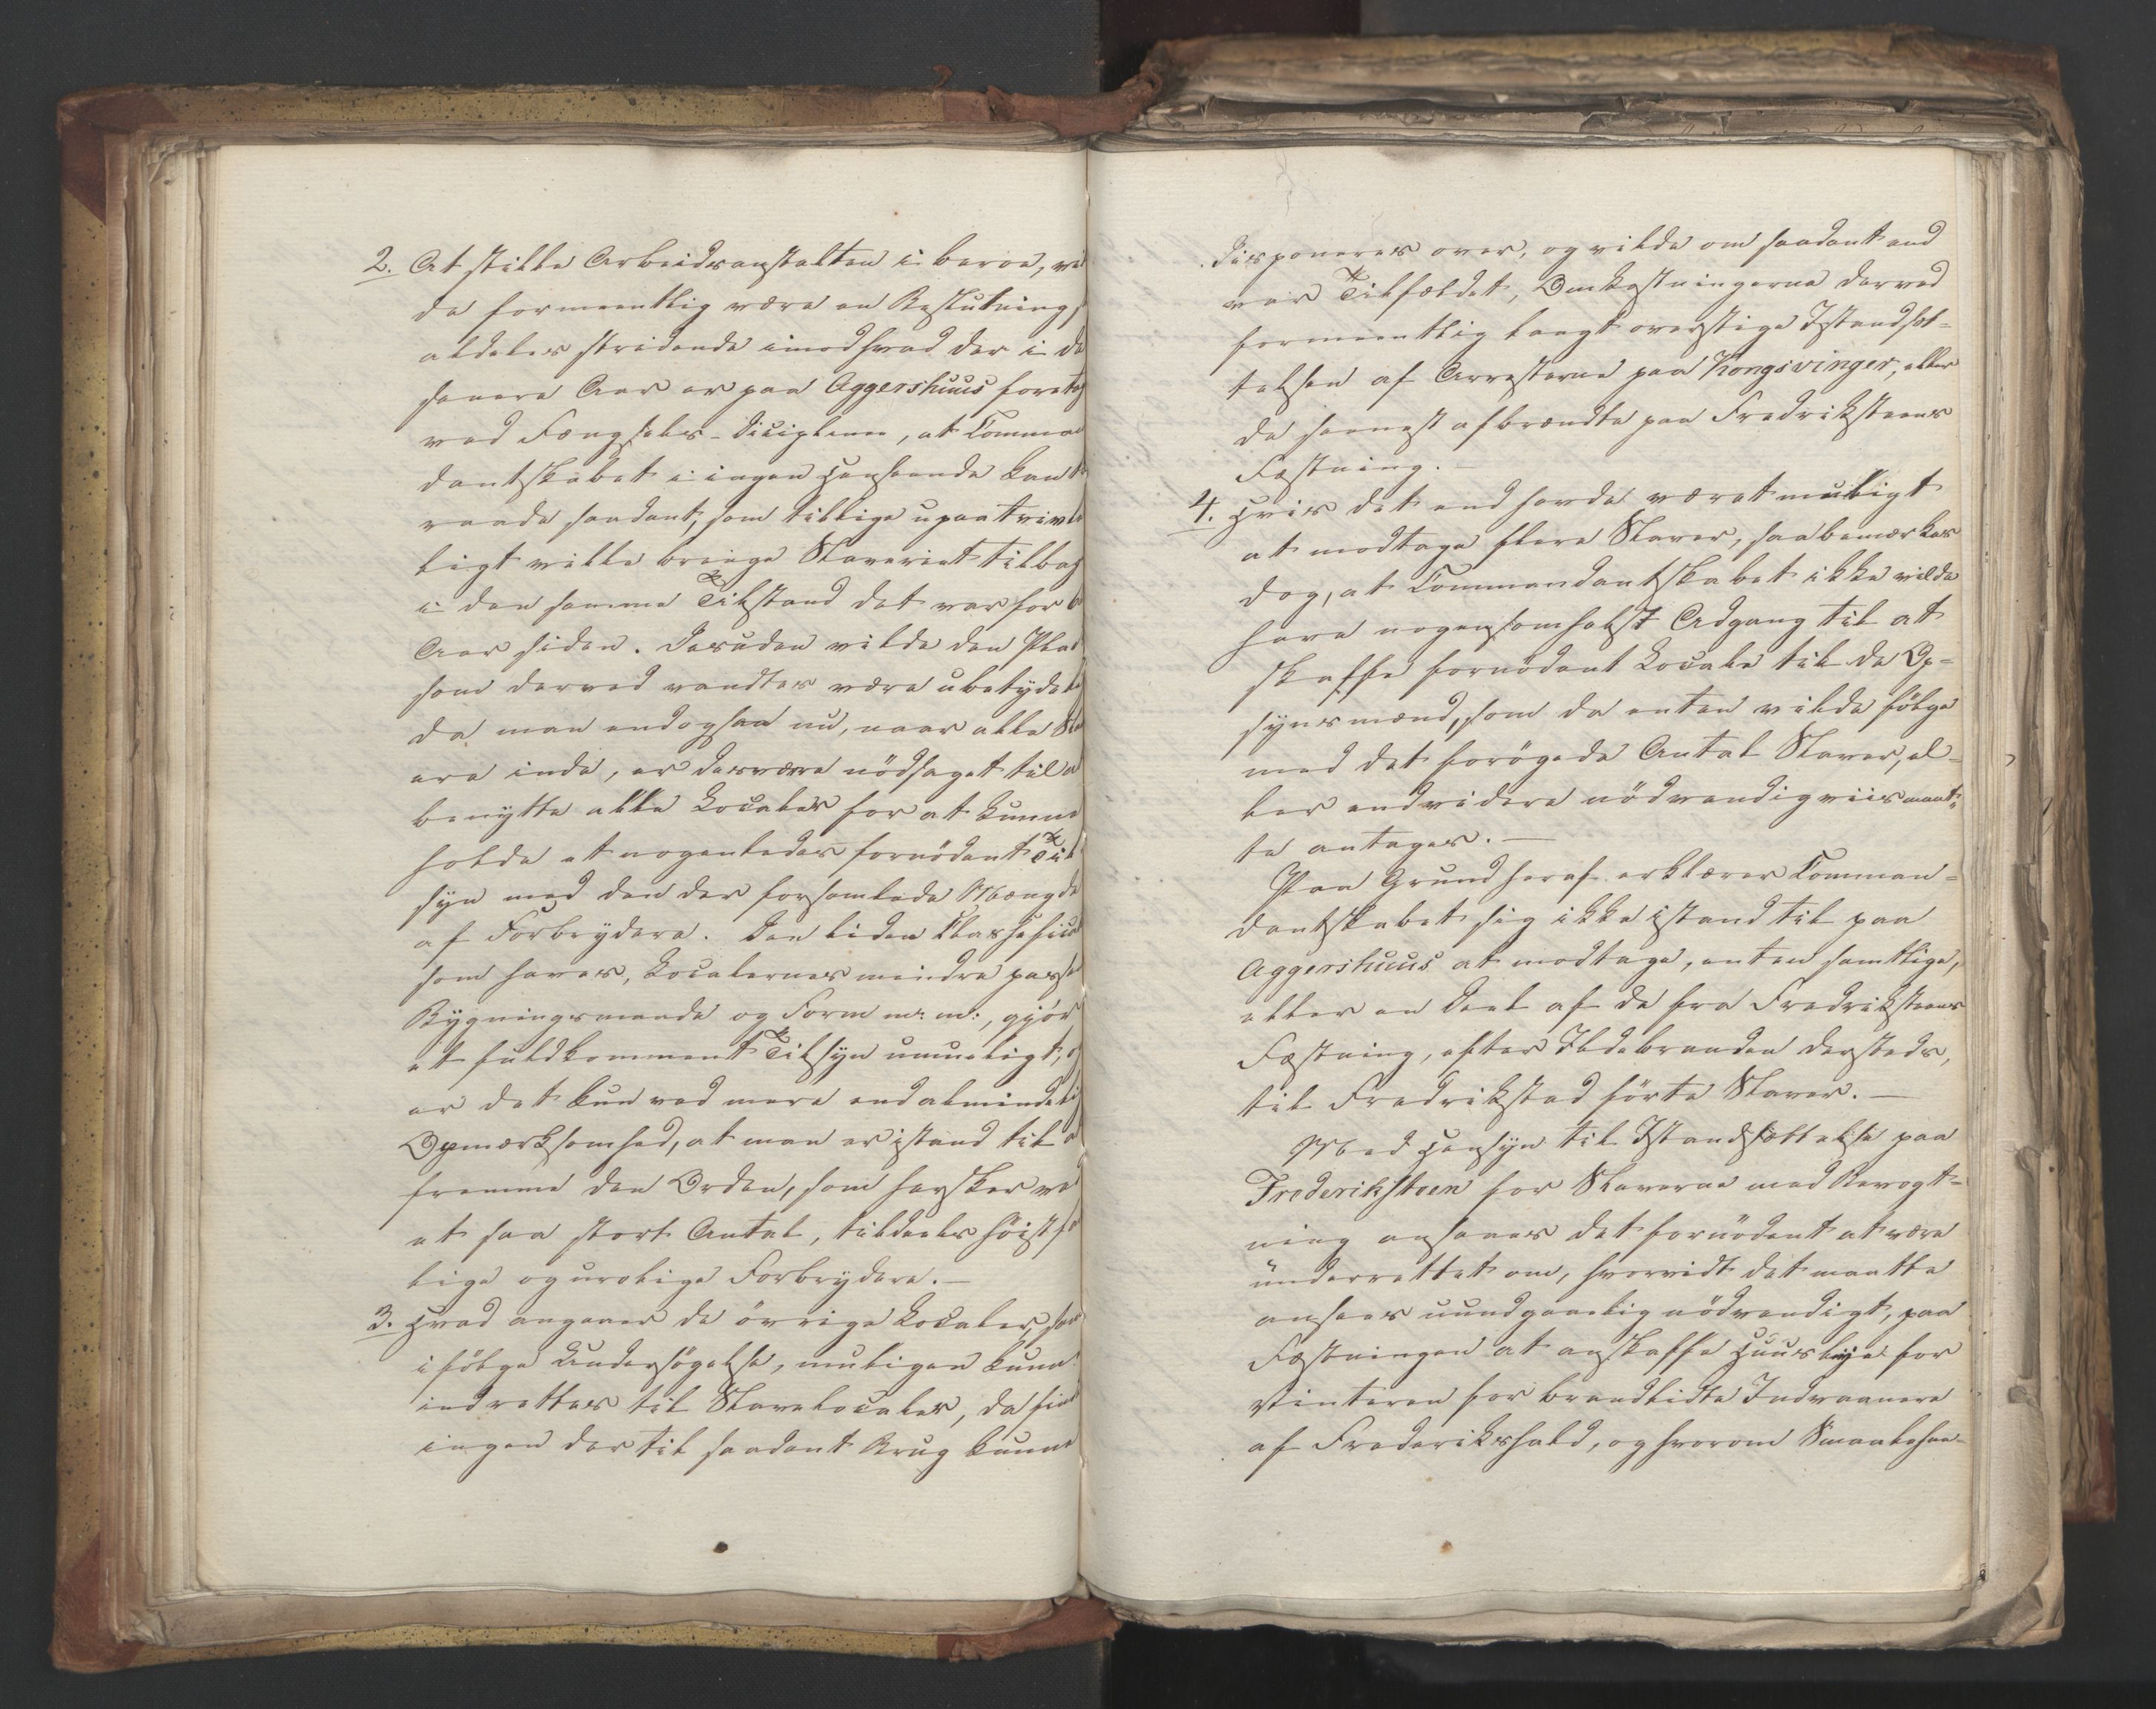 2. At stille Arbeidsanstalten i beroe, vil
de formeentlig være en Beslutning,
aldeles stridende imod hvad der i de
senere Aar er paa Aggershuus foretag
ved Fængsels-Diciplinen, at Comman
dantskabet i ingen Henseende kan til
raade saadant, som tillige upaatvivle
ligt ville bringe Slaveriet tilbag
i den samme Tilstand det var for
Aar siden. Desuden vilde den Plad
som derved vandtes være ubetydelig
da man endogsaa nu, naar alle Sla
ere inde, er desværre nödsaget til a
benytte alle Localer for at kunne
holde et nogenledes fornödent Til
syn med den der forsamlede Mængde
af Forbrydere. Den liden Classeficat
som haves, Localernes mindre passe
Bygningsmaade og Form m: m:, gjör
et fuldkomment Tilsyn umueligt, og
er det kun ved mere end almindelig
Opmærksomhed, at man er istand til a
fremme den Orden, som hersker ved
et saa stort Antal, tildeels höist fa
lige og urolige Forbrydere.—
3. Hvad angaaer de övrige Localer, som
ifölge Undersögelse, muligen kunne
indrettes til Slavelocaler, da find
ingen der til saadant Brug kunne
disponeres over, og vilde om saadant end
var Tilfældet, Omkostningerne derved
formeentlig langt overstige Istandsæt-
telsen af Arresterne paa Kongsvinger, eller
de seenest afbrændte paa Fredriksteens
Fæstning.—
4. Hvis det end havde været muligt
at modtage flere Slaver, saa bemærkes
dog, at Commandantskabet ikke vilde
have nogensomhelst Adgang til at
skaffe fornödent Locale til de Op-
synsmænd, som da enten vilde fölge
med det forögede Antal Slaver, el-
ler endvidere nödvendigviis maat-
te antages.—
Paa Grund heraf erklærer Comman-
dantskabet sig ikke istand til paa
Aggershuus at modtage, enten samtlige,
eller en Deel af de fra Fredriksteens
Fæstning, efter Ildebranden dersteds,
til Fredrikstad förte Slaver.—
Med Hensyn til Istandsættelse paa
Frederiksteen for Slaverne med Bevogt-
ning ansees det fornödent at være
underrettet om, hvorvidt det maatte
ansees uundgaaelig nödvendigt, paa
Fæstningen at anskaffe Huuslye for
Vinteren for brandlidte Indvaanere
af Frederikshald, og hvorom Smaalehne-